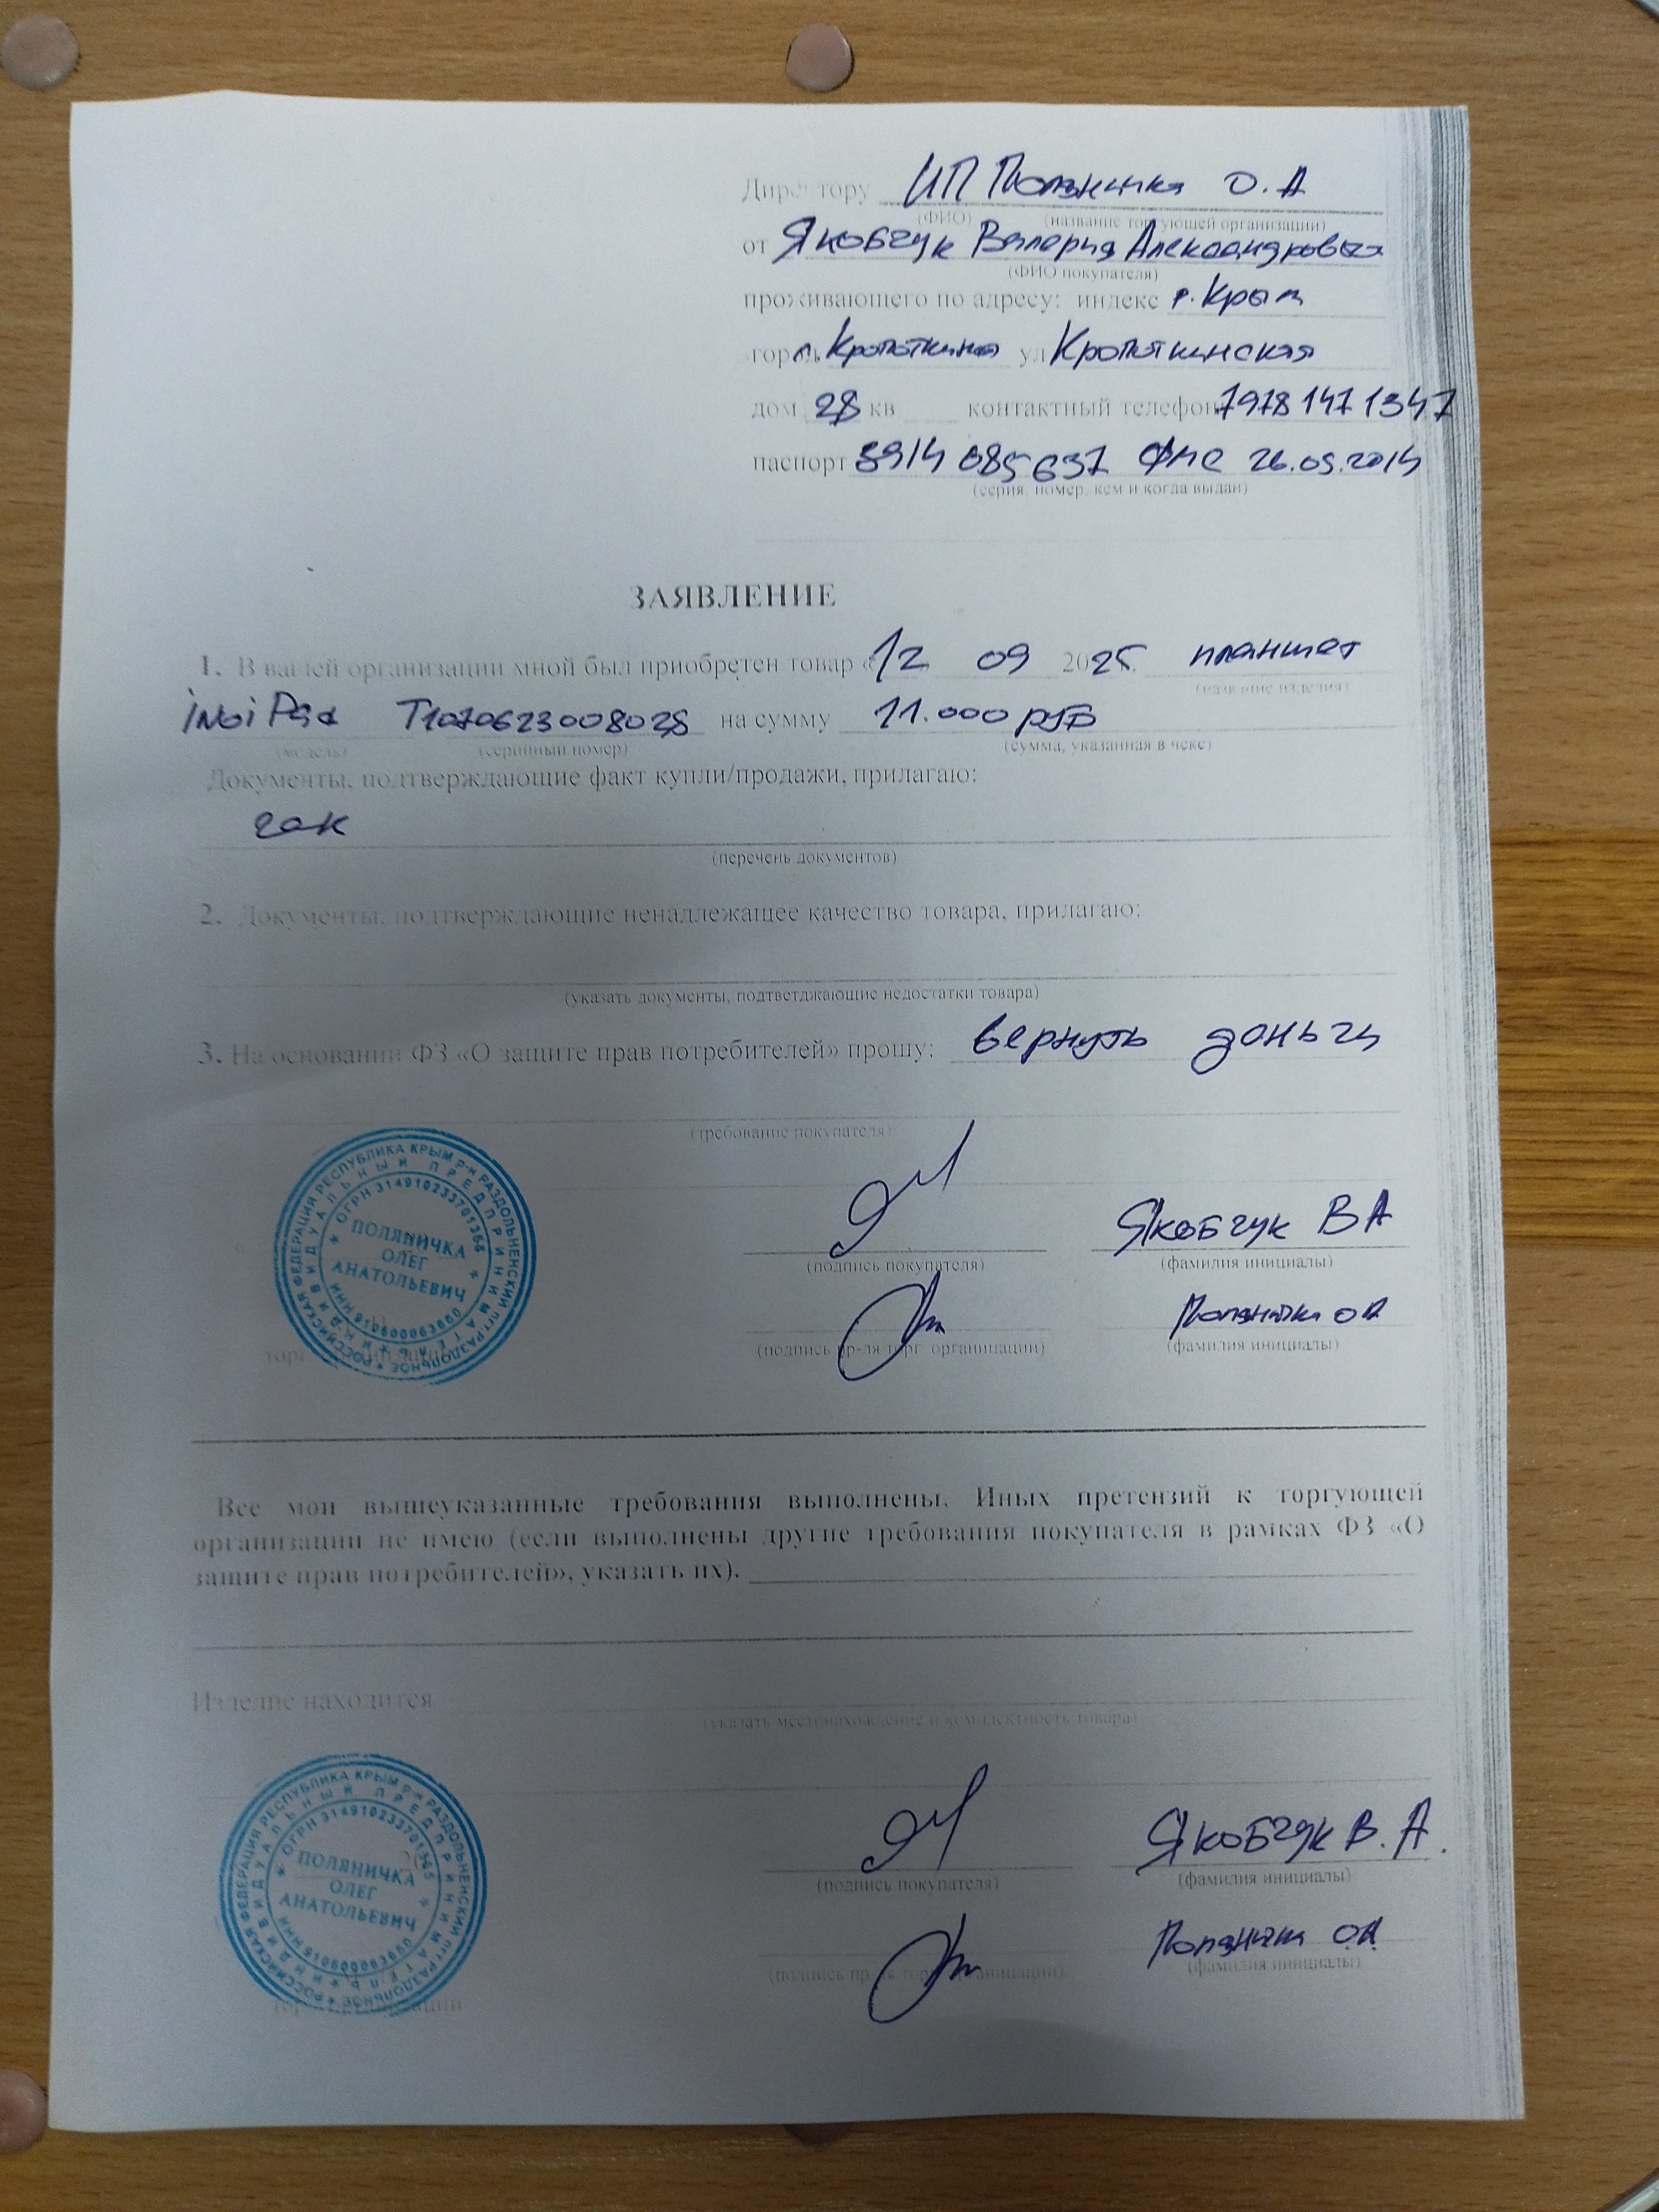 Директору ИП Поляничка О.А
(ФИО) (название торгующей организации)
от Якобчук Валерия Александровна
(ФИО покупателя)
проживающего по адресу: индекс р. Крым
город Кропоткино ул Кропоткинская
дом 28 кв контактный телефон 7978 147 1347
паспорт 3914 085637 ФМС 26.09.2014
(серия, номер, кем и когда выдан)
ЗАЯВЛЕНИЕ
1. В вашей организации мной был приобретен товар «12 09 2025 планшет
(название изделия)
inoi Pad T1070623008028 на сумму 11.000 руб
(модель) (серийный номер) (сумма, указанная в чеке)
Документы, подтверждающие факт купли/продажи, прилагаю:
чек
(перечень документов)
2. Документы, подтверждающие ненадлежащее качество товара, прилагаю:
(указать документы, подтветджающие недостатки товара)
3. На основании ФЗ «О защите прав потребителей» прошу: вернуть деньги
(требование покупателя)
Якобчук В А
(подпись покупателя) (фамилия инициалы)
Поляничка ОА
(подпись пр-ля торг. организации) (фамилия инициалы)
РОССИЙСКАЯ ФЕДЕРАЦИЯ РЕСПУБЛИКА КРЫМ р-н РАЗДОЛЬНЕНСКИЙ пгт РАЗДОЛЬНОЕ
ИНДИВИДУАЛЬНЫЙ ПРЕДПРИНИМАТЕЛЬ
ОГРН 314910233701365
ПОЛЯНИЧКА
ОЛЕГ
АНАТОЛЬЕВИЧ
ИНН
Все мои вышеуказанные требования выполнены. Иных претензий к торгующей
организации не имею (если выполнены другие требования покупателя в рамках ФЗ «О
защите прав потребителей», указать их).
Изделие находится
(указать местонахождение и комплектность товара)
Якобчук В. А.
(подпись покупателя) (фамилия инициалы)
Поляничка О.А.
(подпись пр-ля торг. организации) (фамилия инициалы)
РОССИЙСКАЯ ФЕДЕРАЦИЯ РЕСПУБЛИКА КРЫМ р-н РАЗДОЛЬНЕНСКИЙ пгт РАЗДОЛЬНОЕ
ИНДИВИДУАЛЬНЫЙ ПРЕДПРИНИМАТЕЛЬ
ОГРН 314910233701365
ПОЛЯНИЧКА
ОЛЕГ
АНАТОЛЬЕВИЧ
ИНН